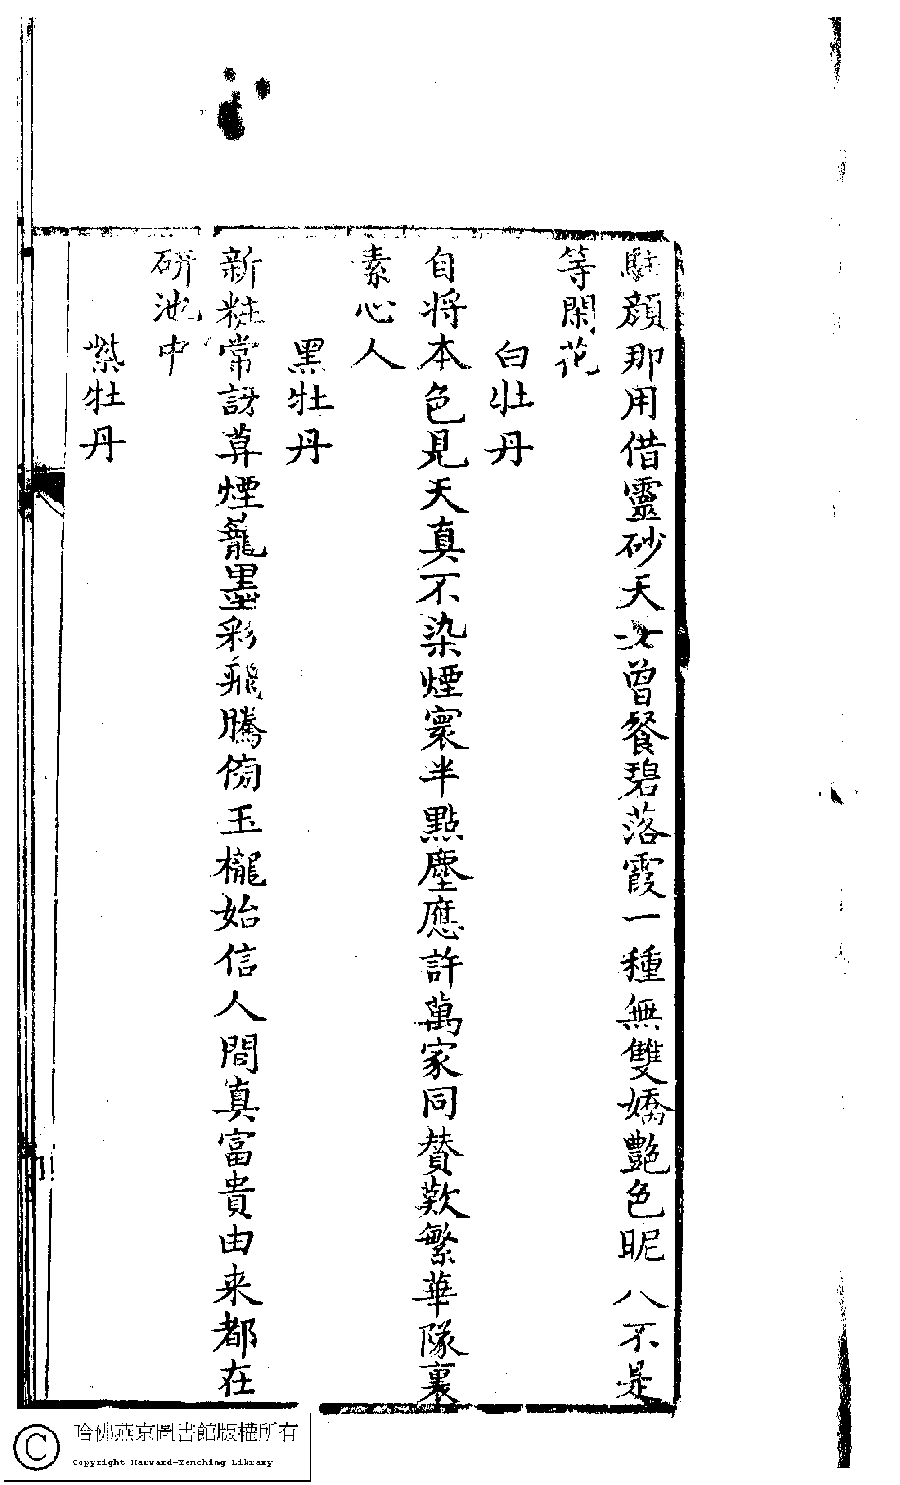 駐顔那用借靈砂天女曾餐碧落霞一種無雙嬌艶色昵人不是
等閑花
白牡丹
自將本色見天真不染煙寰半點塵應許萬家同贊歎繁華隊裏
素心人
黑牡丹
新粧常訝羃煙籠墨彩飛騰傍玉櫳始信人間真富貴由来都在
研池中
紫牡丹
哈佛燕京圖書館版權所有
Copyright Harvard-Yenching Library